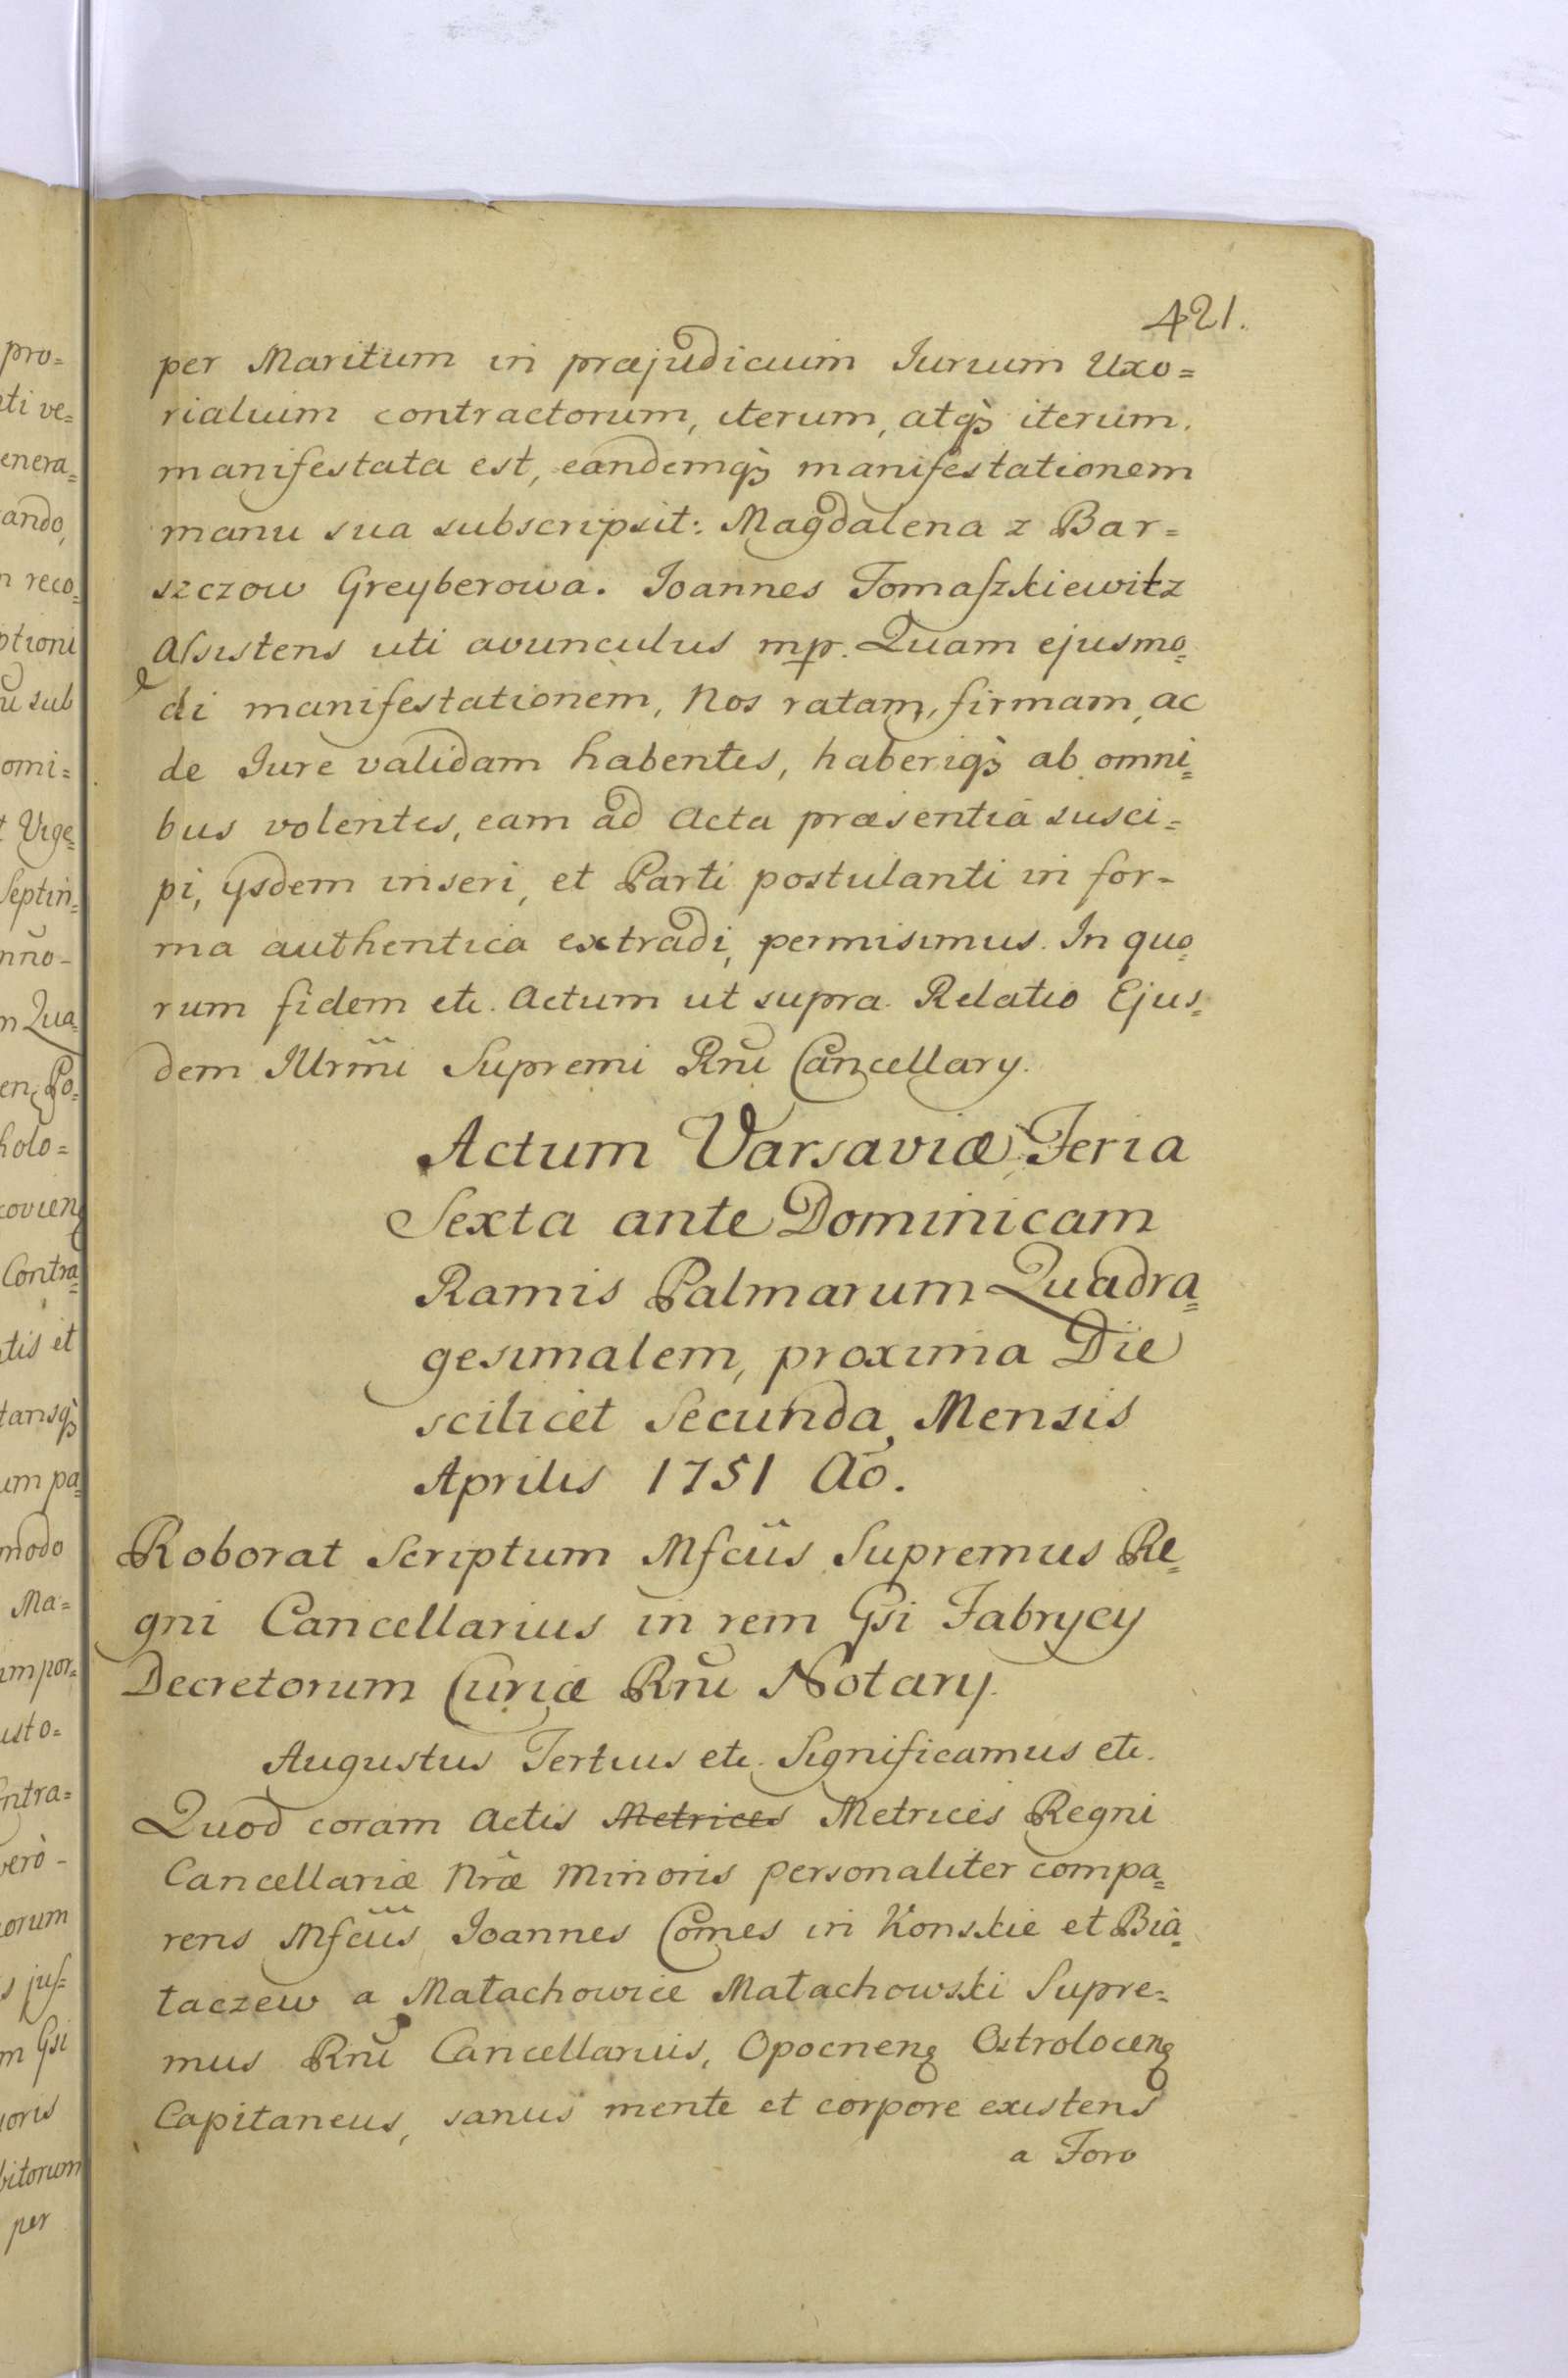 421.
per Maritum in præjudicium Iurium Uxo=
rialium contractorum, iterum, atq̀ȝ iterum.
manifestata est, eandemq̀ȝ manifestationem
manu sua subscripsit: Magdalena z Bar=
szczow Greyberowa. Ioannes Tomaſzkiewitz
Aſsistens uti avunculus mp. Quam ejusmo=
di manifestationem, Nos ratam, firmam, ac
de Iure validam habentes, haberiq̀ȝ ab omni=
bus volentes, eam ad Acta præsentia susci=
pi, ysdem inseri, et Parti postulanti in for-
ma authentica extradi, permisimus. In quo=
rum fidem etc. Actum ut supra. Relatio Ejus=
dem Illrm̃i Supremi Rñi Cancellary.
Actum Varsaviæ Feria
Sexta ante Dominicam
Ramis Palmarum Quadra=
gesimalem, proxima Die
scilicet Secunda, Mensis
Aprilis 1751 Aõ.
Roborat Scriptum Mfcus Supremus Re=
gni Cancellarius in rem Gsi Fabrycy
Decretorum Curiæ Rñi Notary.
Augustus Tertius etc. Significamus etc.
Quod coram Actis Metrices Metrices Regni
Cancellariæ Nr̃æ Minoris personaliter compa=
rens Mfcus Ioannes Comes in Konskie et Bia=
taczew a Matachowice Matachowski Supre=
mus Rñi Cancellarius, Opocnenȝ Ostrolocenȝ
Capitaneus, sanus mente et corpore existens
a Foro
pro=
ti ve=
enera=
ando,
n reco=
ptioni
u sub
omi=
t Vige=
Septin=
nño-
m Qua=
en, Po=
holo=
covienȝ
Contra=
tis et
tansq̀ȝ
um pa=
modo
Ma=
impor=
usto=
ntra=
verò -
orum
s juſ=
m Gsi
oris
bitorum
per